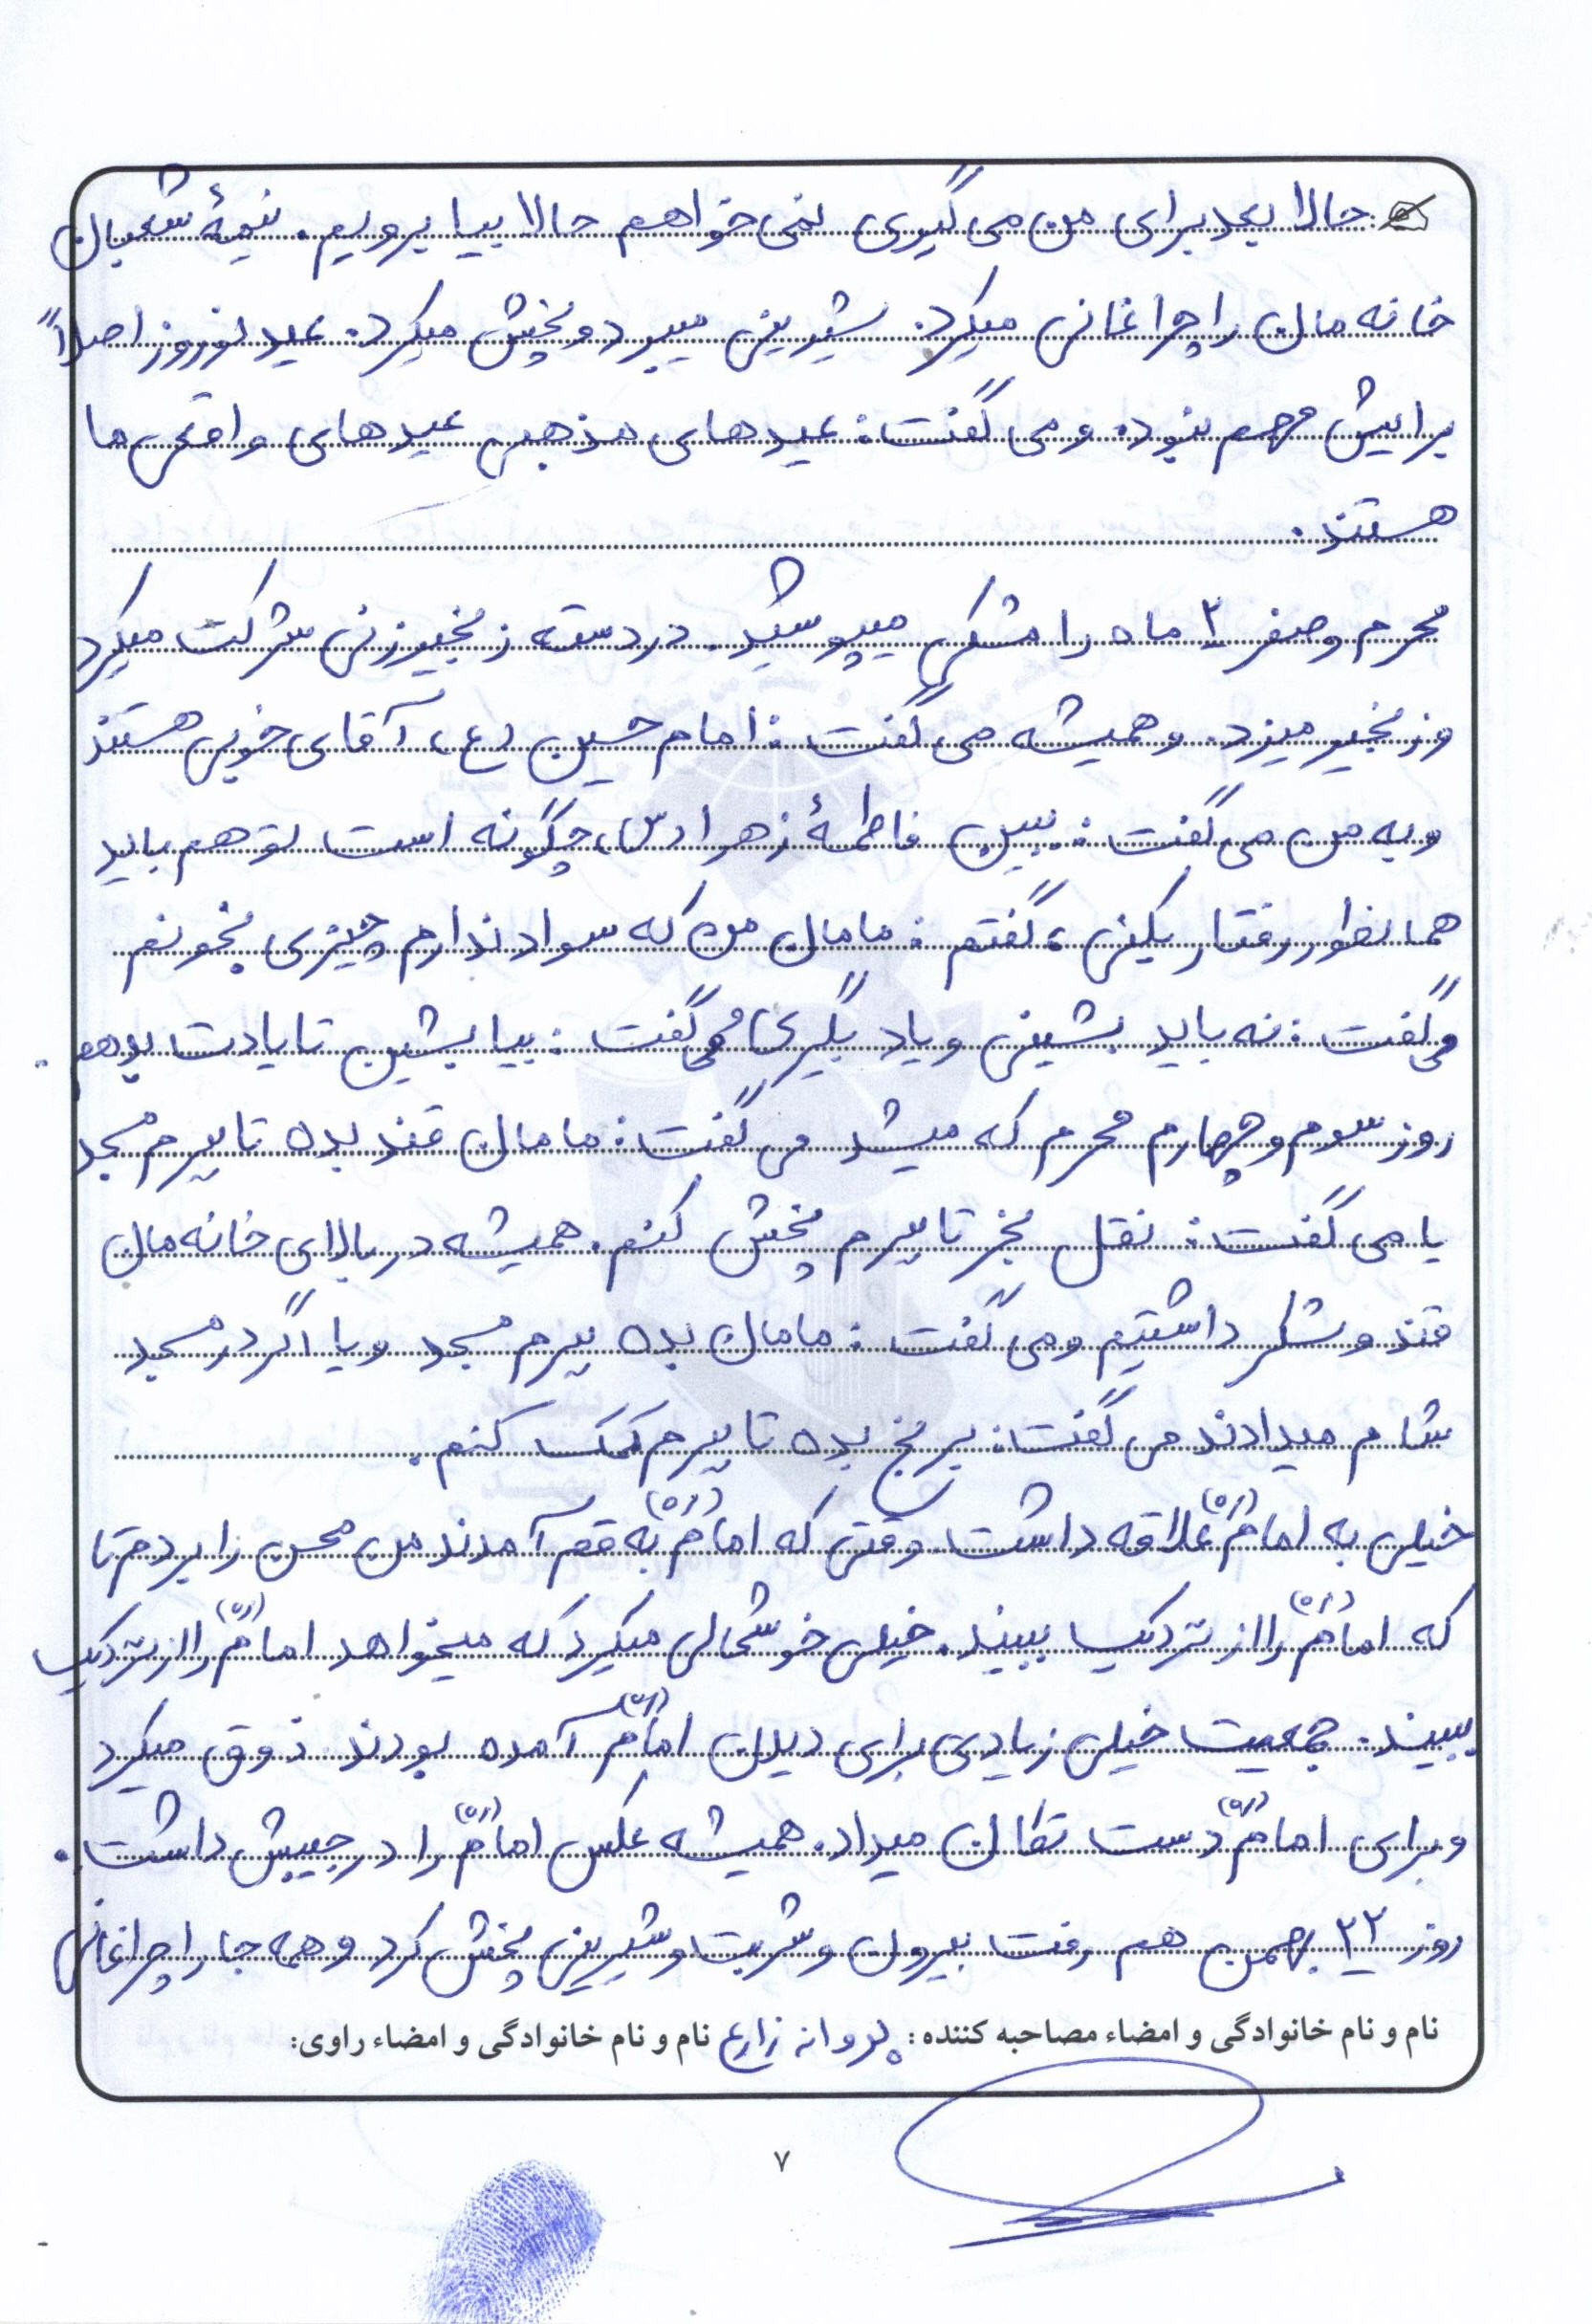 حالا بعد برای من می گیری نمی خواهم حالا بیا برویم. نیمهٔ شعبان
خانه مان را چراغانی میکرد. شیرینی میبرد و پخش میکرد. عید نوروز اصلاً
برایش مهم نبود. و می گفت: عیدهای مذهبی عیدهای واقعی ما
هستند.
محرم و صفر ۲ ماه را مشکی میپوشید. در دسته زنجیرزنی شرکت میکرد
و زنجیر میزد. و همیشه می گفت: امام حسین (ع) آقای خوبی هستند
و به من می گفت: ببین فاطمهٔ زهرا (س) چگونه است تو هم باید
همانطور رفتار بکنی، گفتم: مامان من که سواد ندارم چیزی بخونم
می گفت: نه باید بشینی و یاد بگیری می گفت: بیا بشین تا یادت بدهم.
روز سوم و چهارم محرم که میشد می گفت: مامان قند بده تا ببرم مسجد
یا می گفت: نقل بخر تا ببرم پخش کنم. همیشه در بالای خانه مان
قند و شکر داشتیم و می گفت: مامان بده ببرم مسجد و یا اگر در مسجد
شام میدادند می گفت: برنج بده تا ببرم کمک کنم.
خیلی به امام (ره) علاقه داشت وقتی که امام (ره) به قم آمدند من محسن را بردم تا
که امام (ره) را از نزدیک ببیند. خیلی خوشحالی میکرد که میخواهد امام (ره) را از نزدیک
ببیند. جمعیت خیلی زیادی برای دیدن امام (ره) آمده بودند. ذوق میکرد
و برای امام (ره) دست تکان میداد. همیشه عکس امام (ره) را در جیبش داشت.
روز ۲۲ بهمن هم رفت بیرون و شربت و شیرینی پخش کرد و همه جا را چراغانی
نام و نام خانوادگی و امضاء مصاحبه کننده: پروانه زارع نام و نام خانوادگی و امضاء راوی:
۷